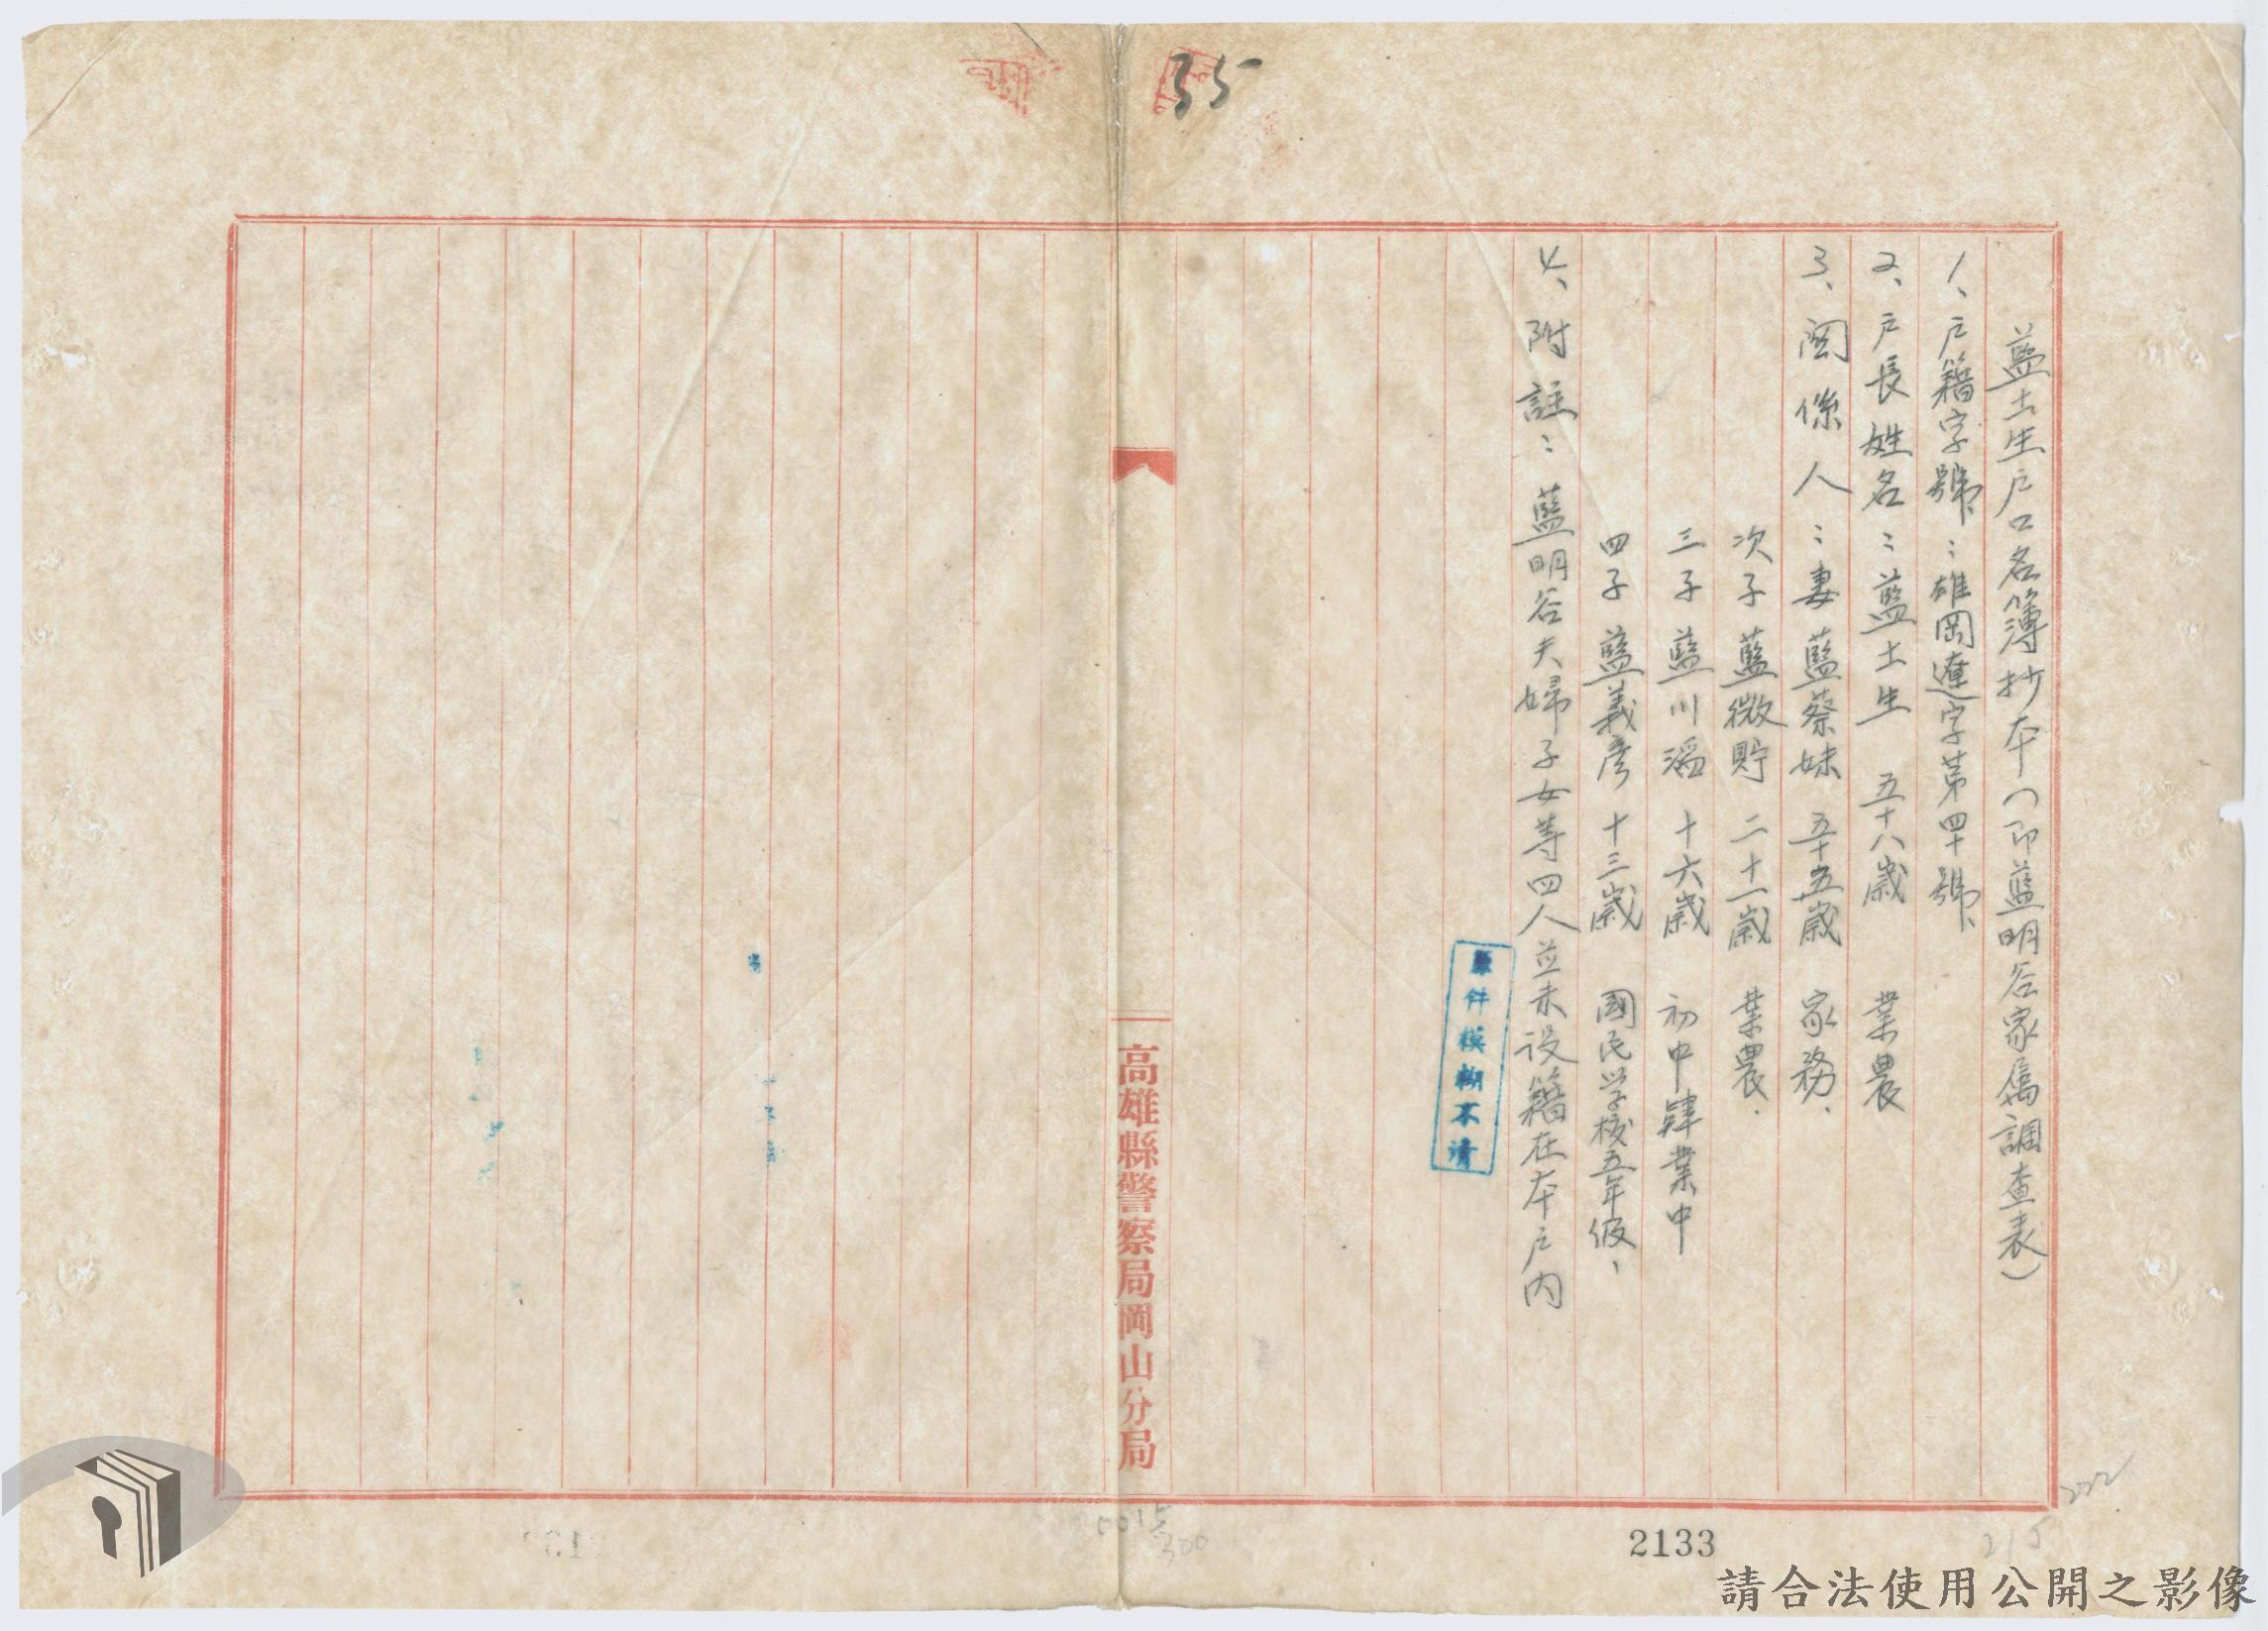 35
藍土生戶口名簿抄本(即藍明谷家屬調查表)
1、戶籍字號：雄岡遼字第四十號、
2、戶長姓名：藍土生 五十八歲 業農
3、關係人：妻 藍蔡妹 五十五歲 家務、
次子 藍微貯 二十一歲 業農、
三子 藍川滔 十六歲 初中肄業中
四子 藍義彥 十三歲 國民学校五年級、
4、附註：藍明谷夫婦子女等四人並未设籍在本戶內
原件模糊不清
高雄縣警察局岡山分局
2133
215
222
0015
300
請合法使用公開之影像